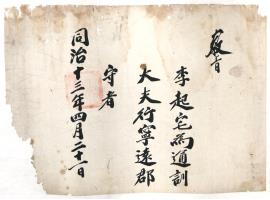 敎旨
李起宅爲通訓
大夫行寧遠郡
守者
同治十三年四月二十一日